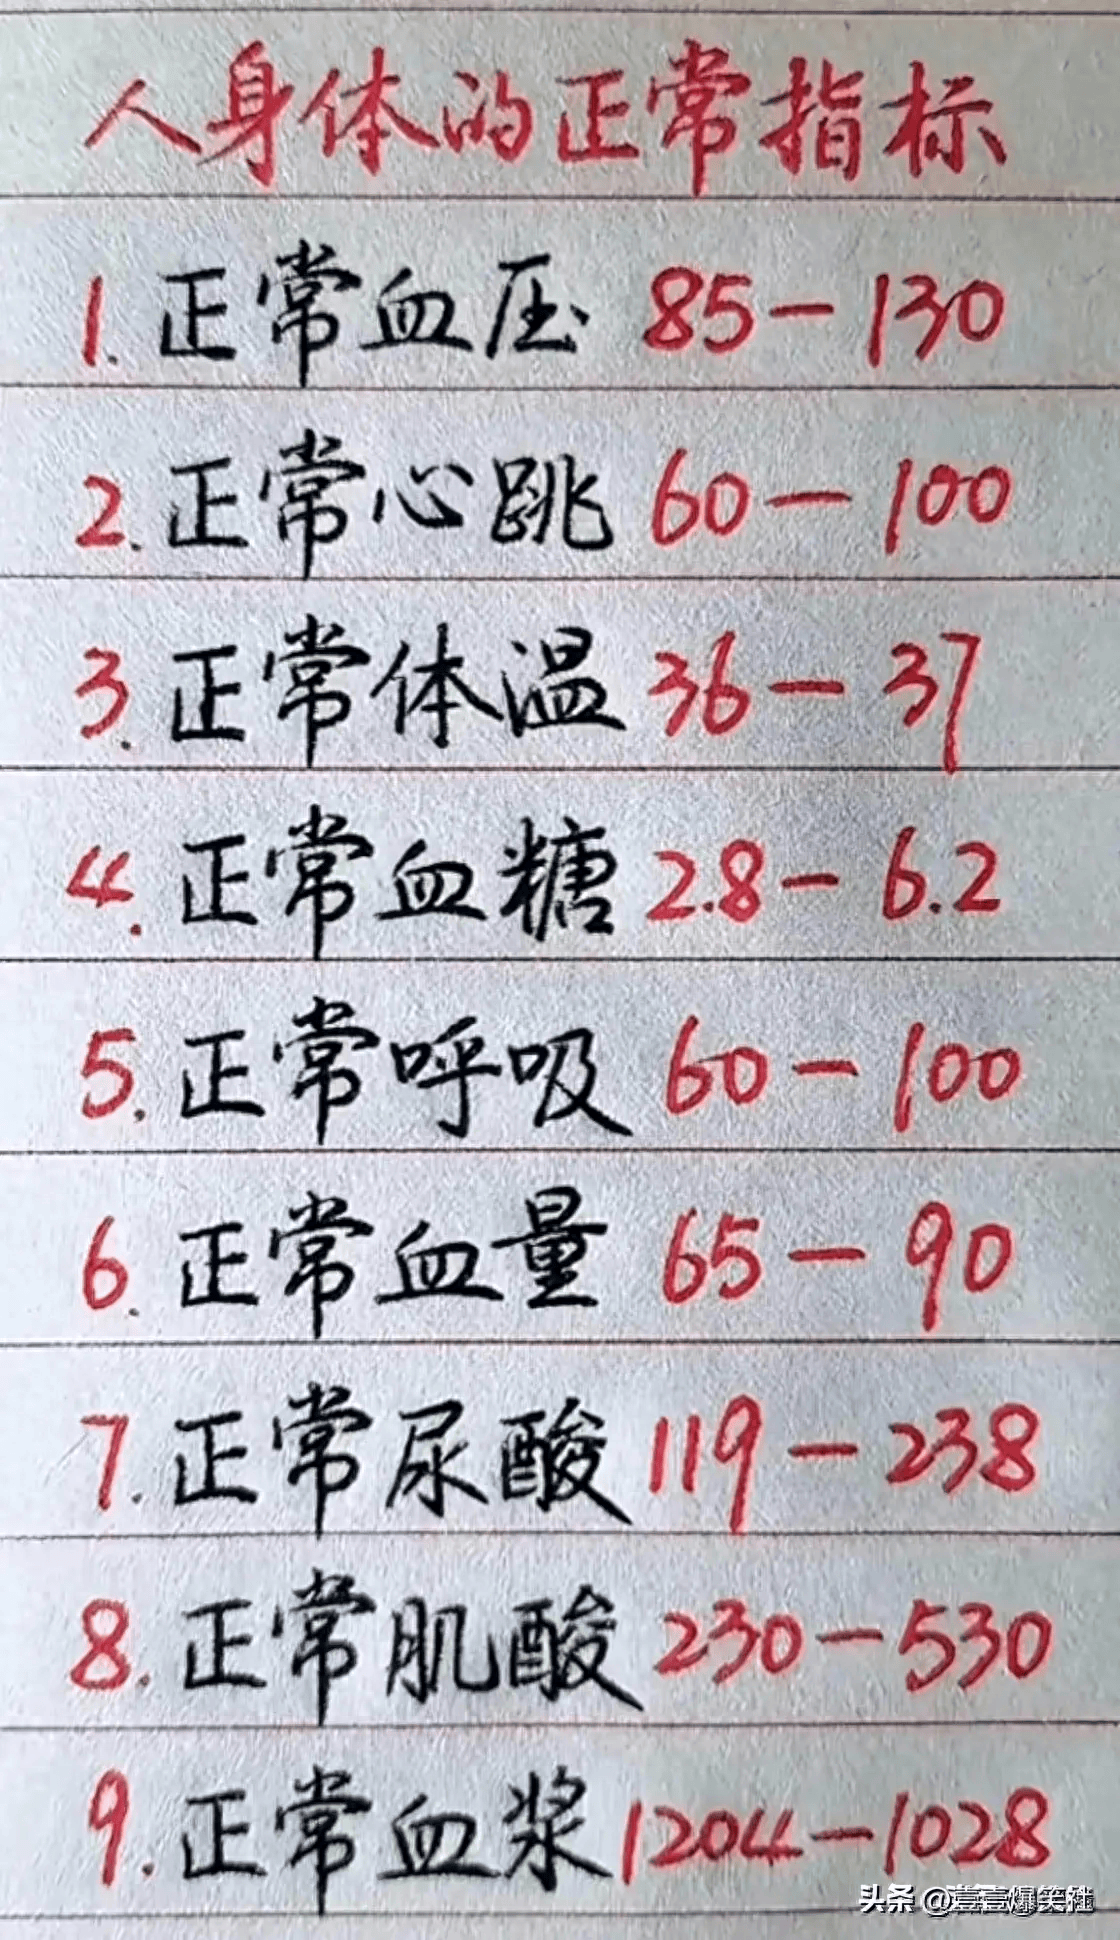 人身体的正常指标
1.正常血压 85—130
2.正常心跳 60—100
3.正常体温 36—37
4.正常血糖 2.8—6.2
5.正常呼吸 60—100
6.正常血量 65—90
7.正常尿酸 119—238
8.正常肌酸 230—530
9.正常血浆 1204—1028
头条 @壹壹爆笑社